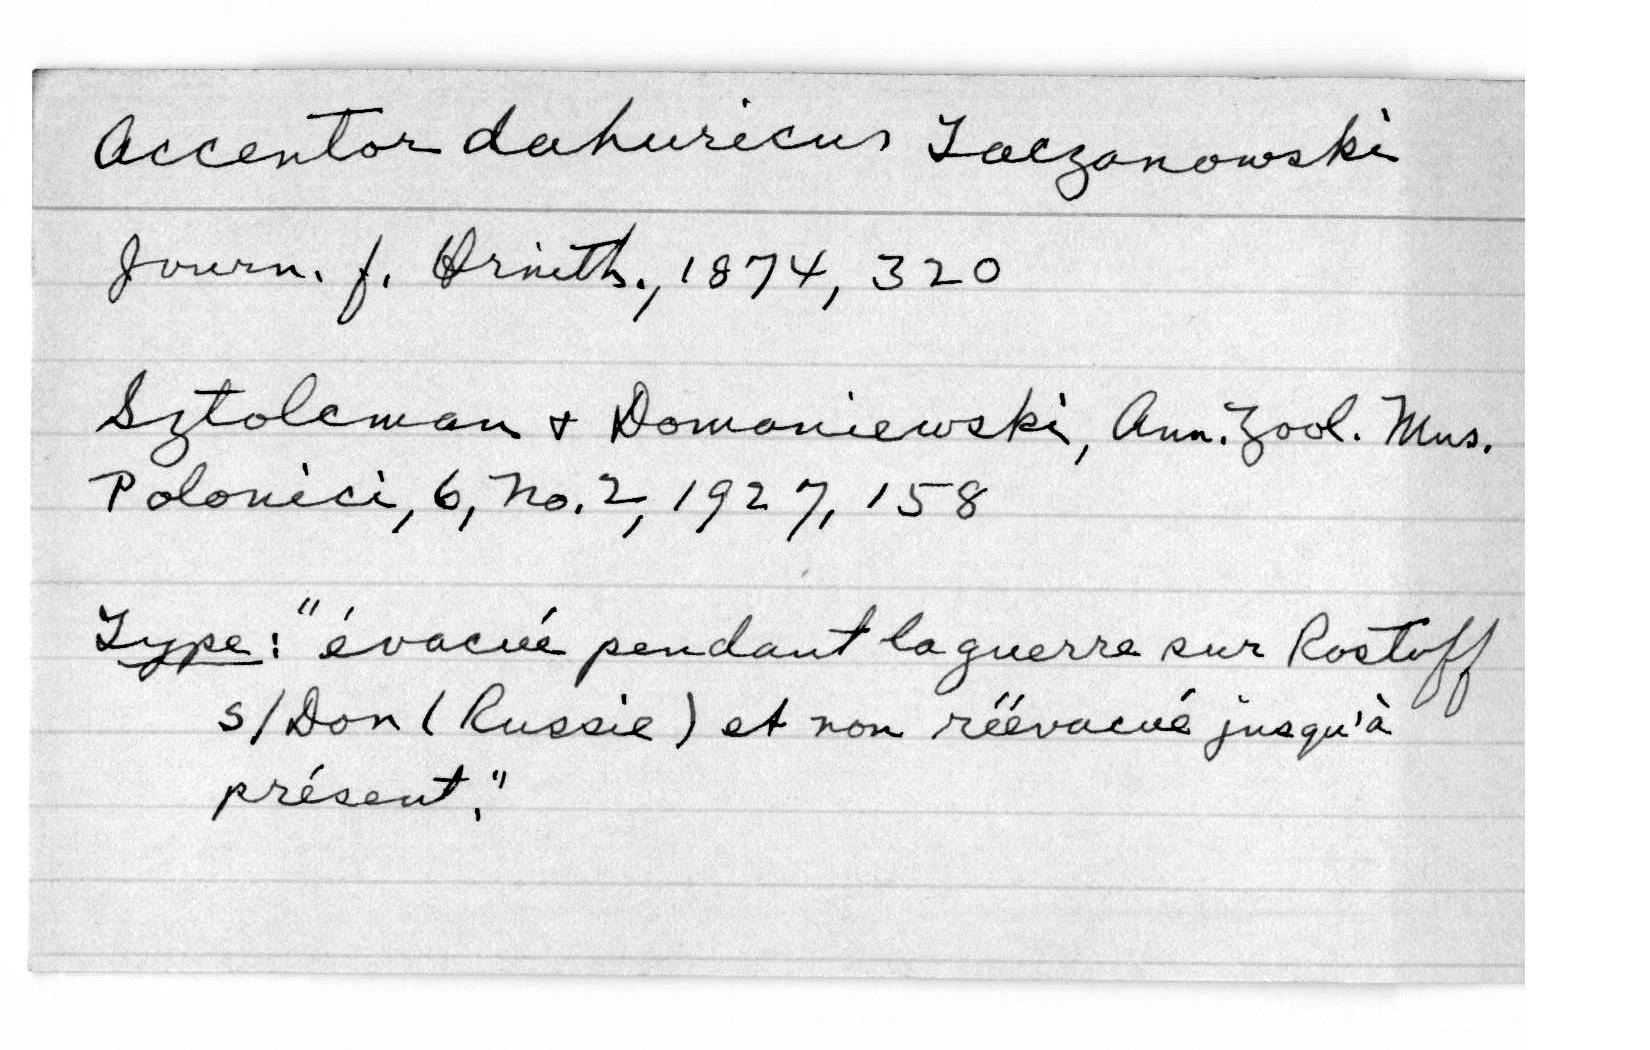 Accentor dahuricus Taczanowski
Journ. f. Ornith., 1874, 320
Sztolcman + Domaniewski, Ann. Zool. Mus.
Polonici, 6, No. 2, 1927, 158
Type: "évacué pendant la guerre sur Rostoff
s/Don (Russie) et non réévacué jusqu'à
présent."